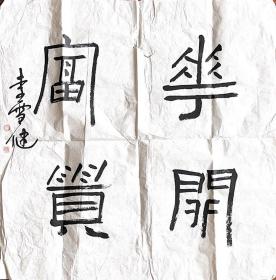 華開
富貴
李雪健